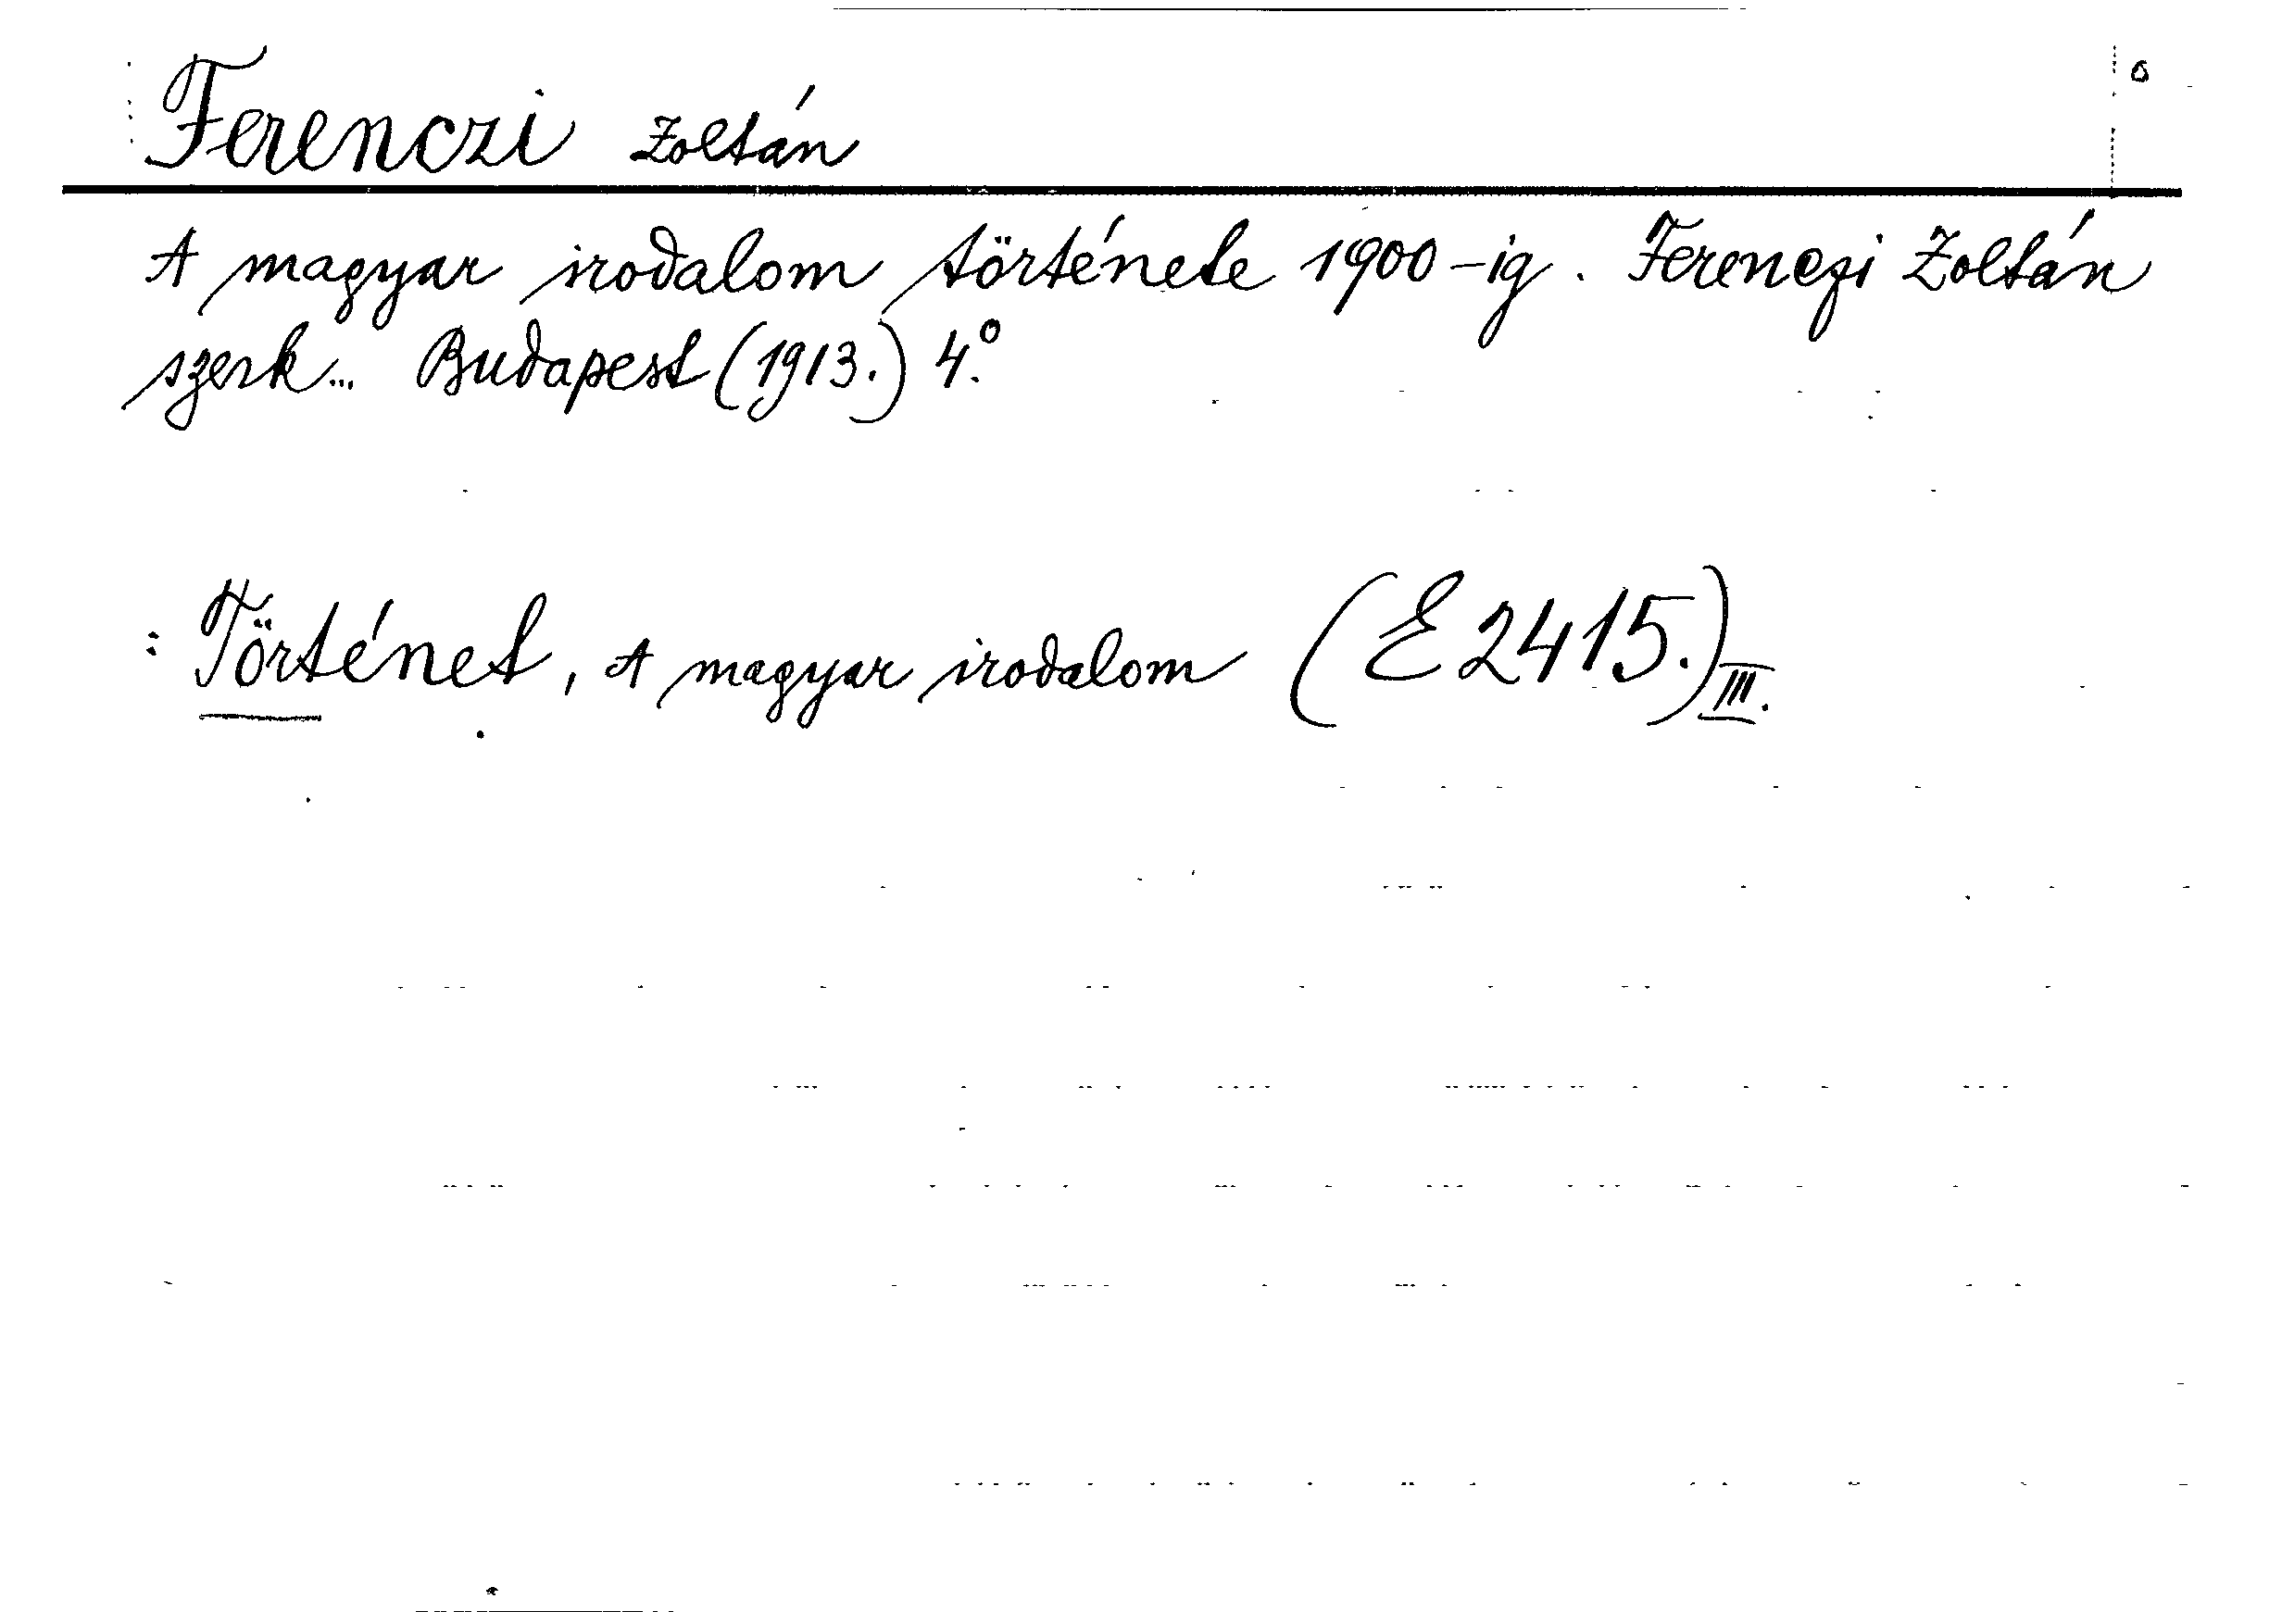 Ferenczi Zoltán
A magyar irodalom története 1900-ig. Ferenczi Zoltán
szerk... Budapest (1913.) 4.°
: Történet, A magyar irodalom (E 2415.) III.